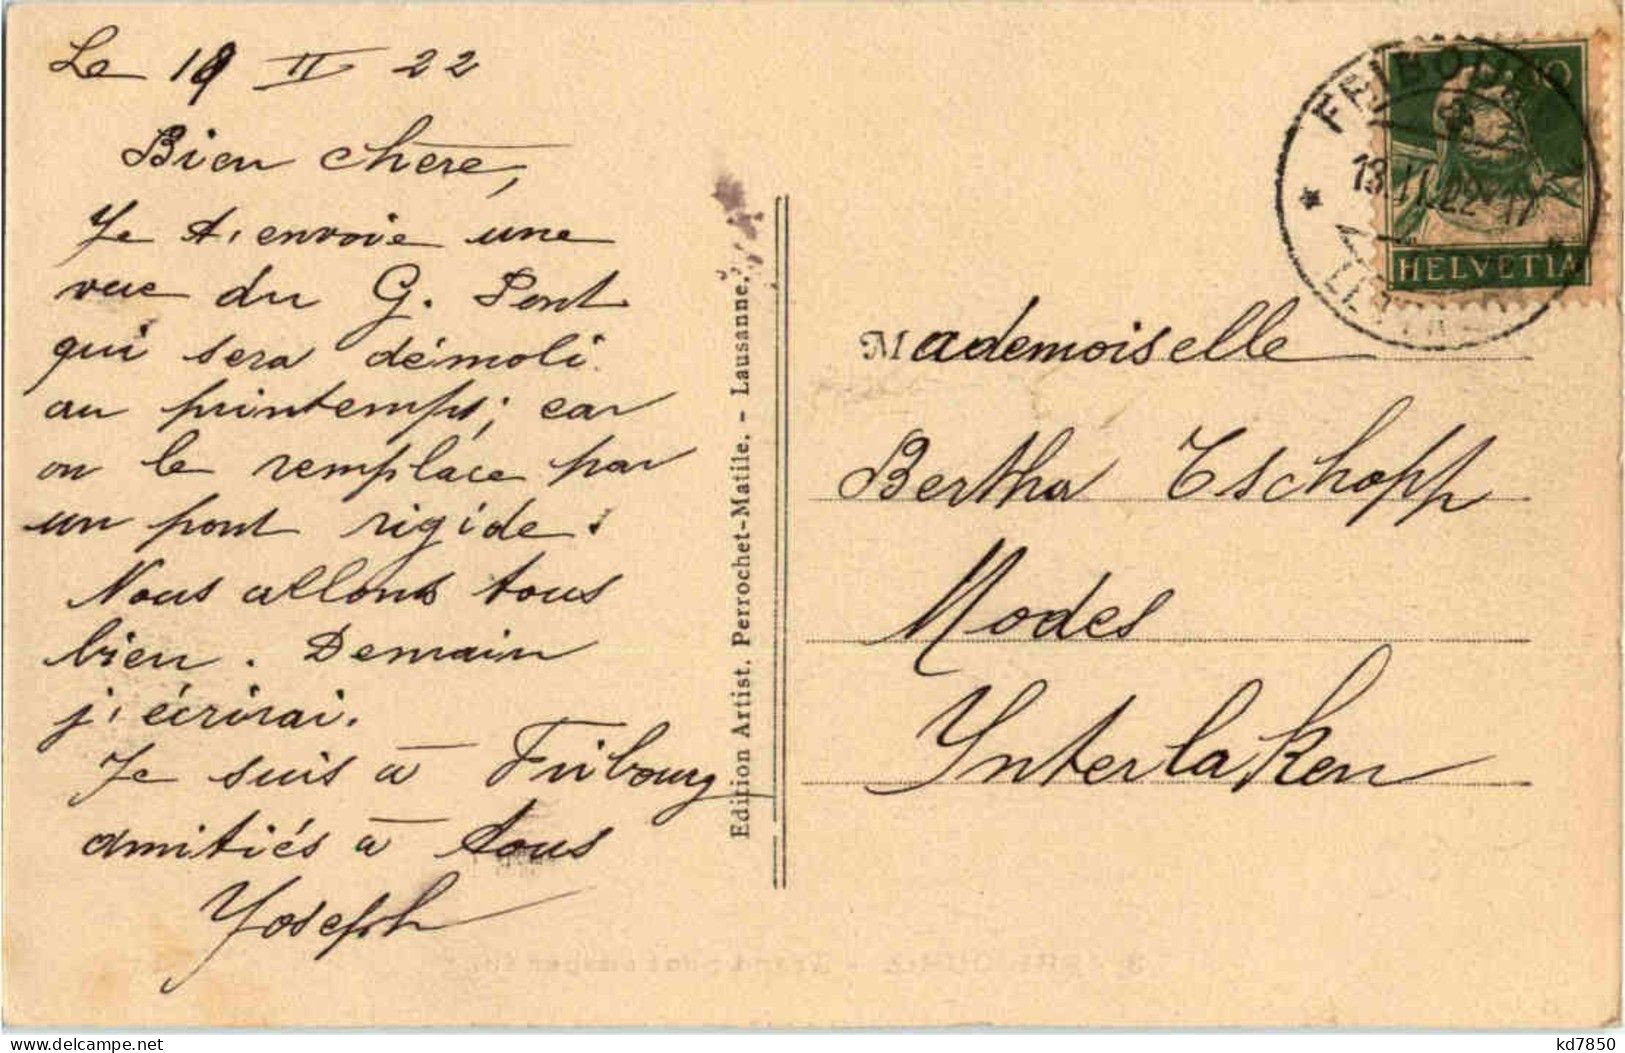 Le 19 II 22
Bien chère,
Je t'envoie une
vue du G. Pont
qui sera démoli
au printemps; car
on le remplace par
un pont rigide.
Nous allons tous
bien. Demain
j'écrirai.
Je suis à Fribourg
amitiés à tous
Joseph
Edition Artist. Perrochet-Matile. - Lausanne.
HELVETIA
Mademoiselle
Bertha Tschopp
Modes
Interlaken
kd7850